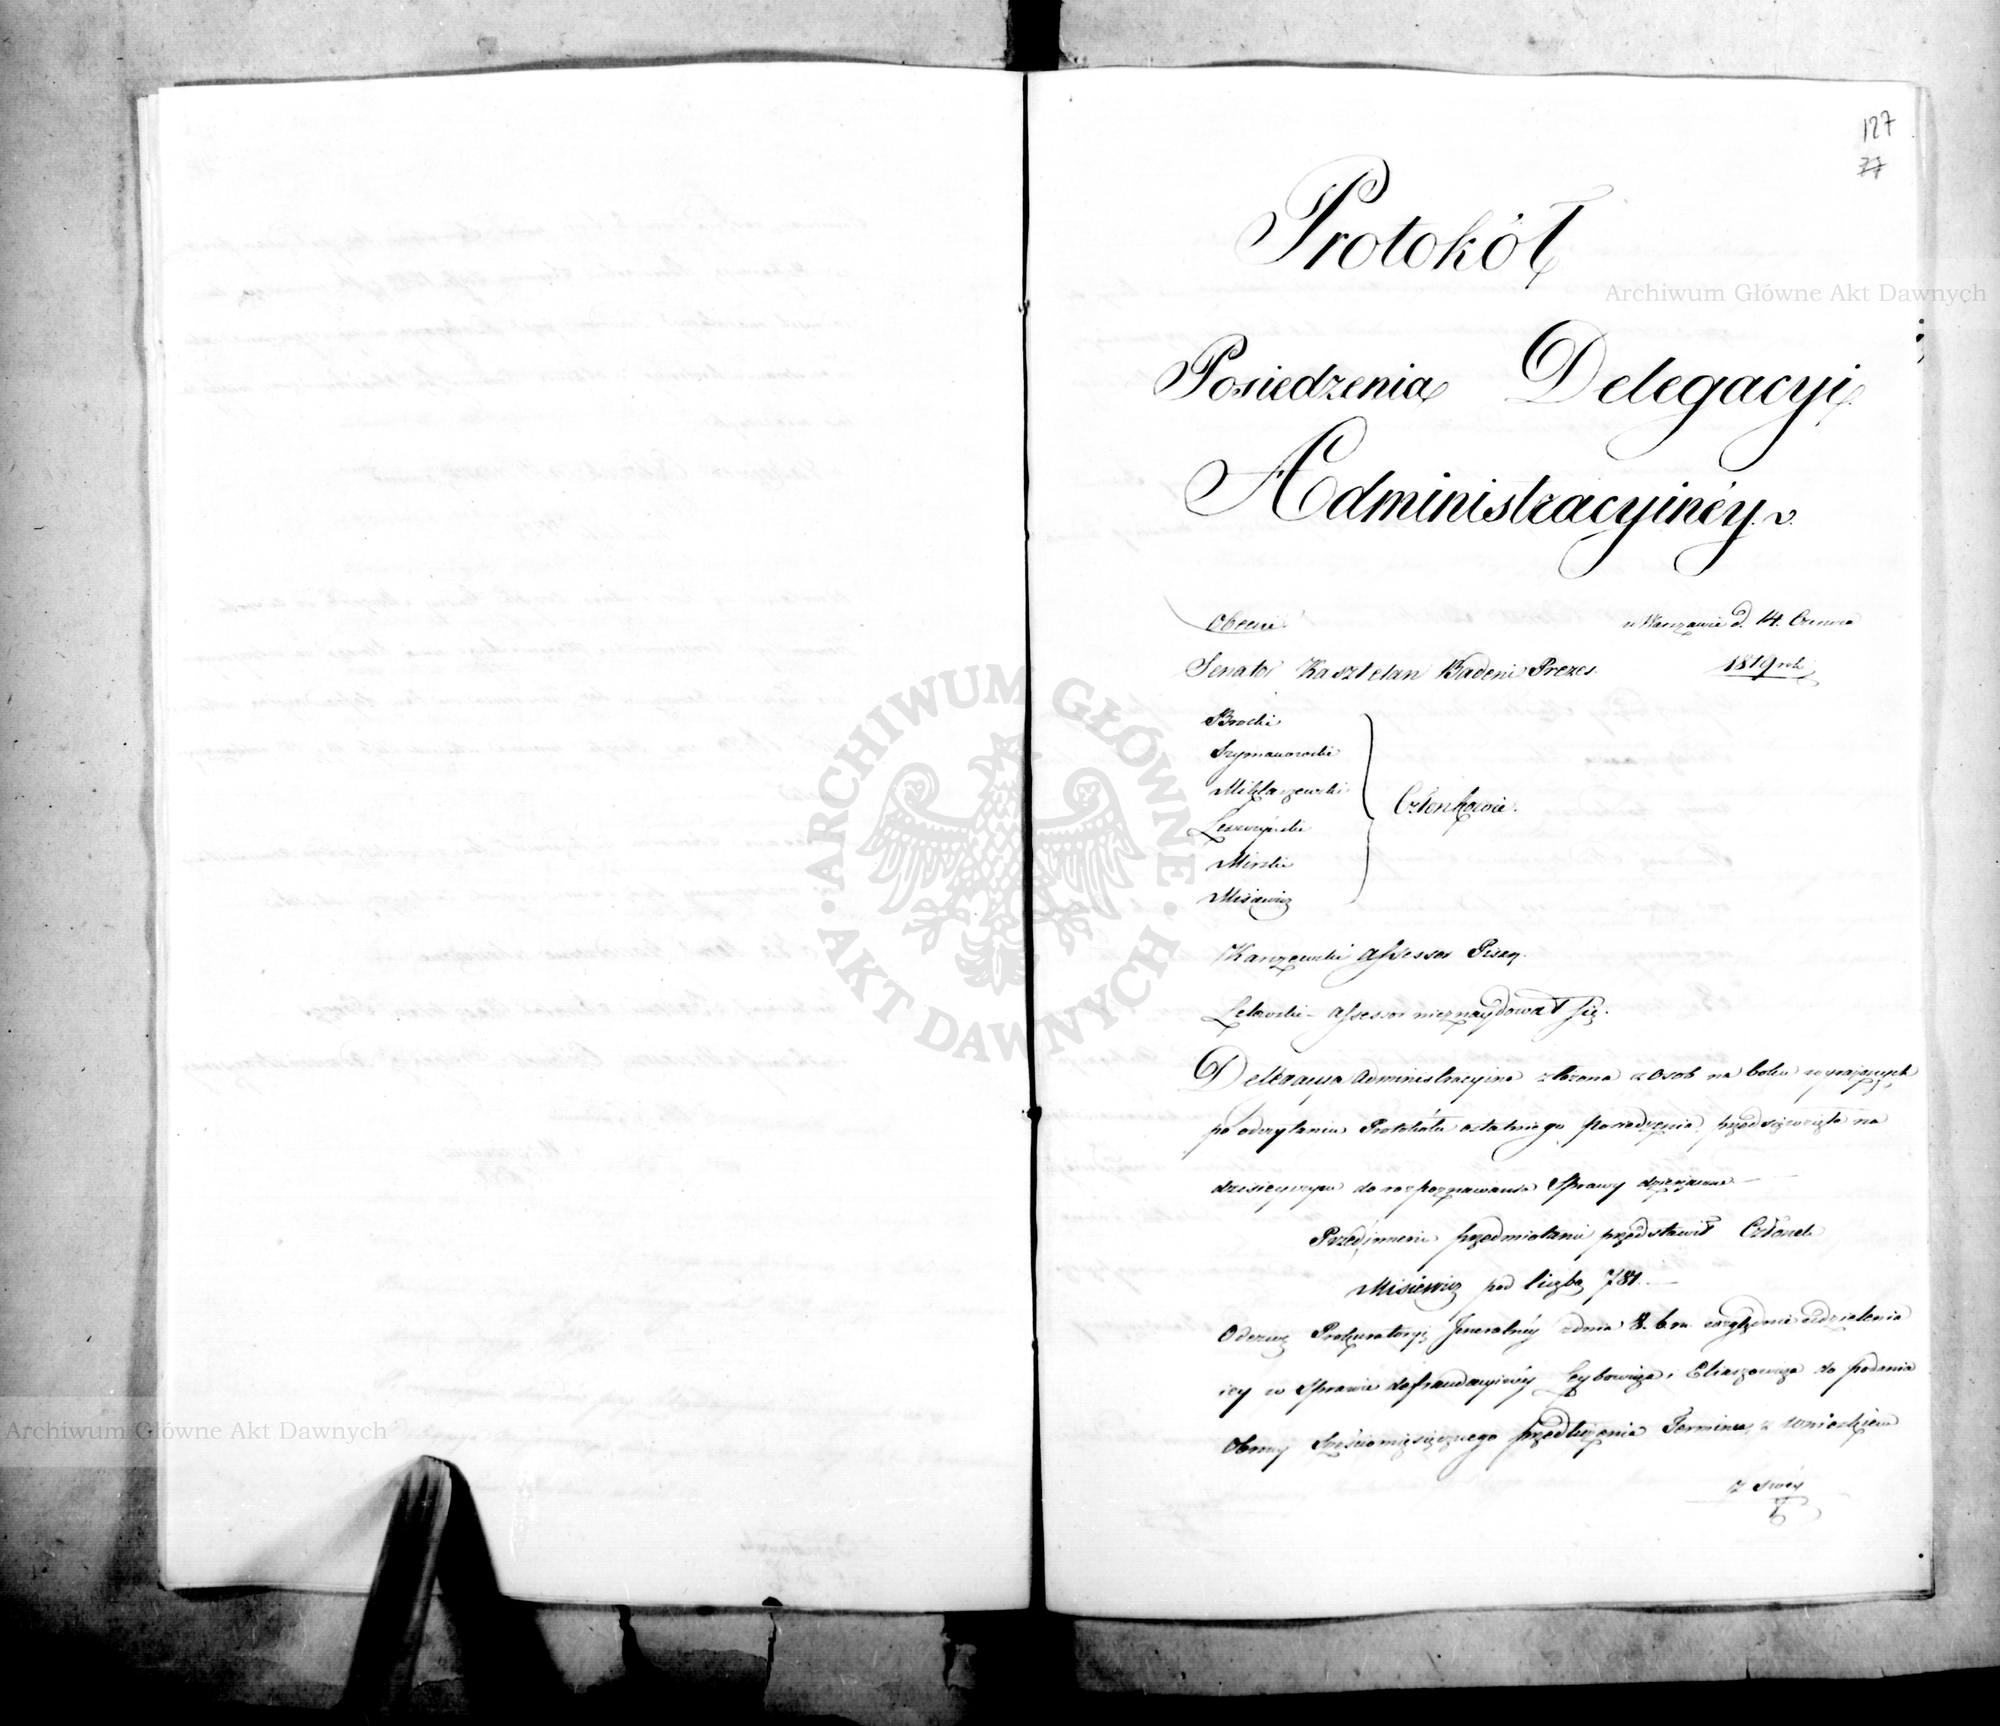 127
77
Protokół
Posiedzenia Delegacyi
Administracyinéy.
Obecni.
w Warszawie d. 14. Czerwca
1819 roku
Senator Kasztelan Badeni Prezes.
Brocki
Szymanowski
Miklaszewski
Leszczyński
Mirski
Misiewicz
Członkowie.
Karczewski Assessor Pisarz.
Assessor nieznaydował się.
Delegacya Administracyina złożona z Osob na boku wyrażonych
po odczytaniu Protokółu ostatniego posiedzenia, przedsięwzięła na
dzisieyszym do rozpoznawania Sprawy
przedmiotami przedstawił Członek
Misiewicz pod liczbą 781.
Odezwę Prokuratoryi Jeneralnéy z dnia 8. b.m. względnie udzielenia
iey w Sprawie defraudacyinéy Leybowicza i Eliaszowicza do podania
Obrony Sześciomięsięcznego przedłużenia Terminu, z wnioskiem
z swéy
Archiwum Główne Akt Dawnych
Archiwum Główne Akt Dawnych
ARCHIWUM GŁÓWNE
AKT DAWNYCH